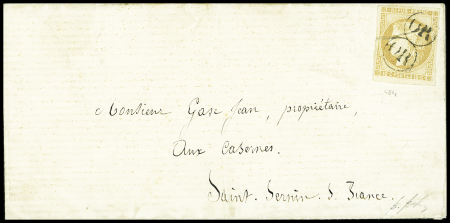 OR
OR
Monsieur Gase Jean, propriétaire,
Aux Casernes.
Saint. Sernin. S. Rance.